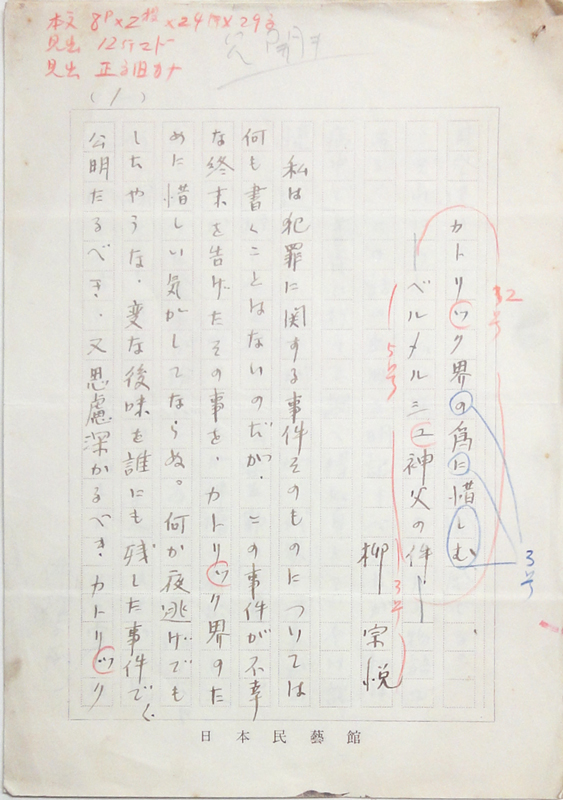 本文 8P×2段×24行×29字
見出 12行ヱドー
見出 正字旧カナ
(1)
カトリック界の為に惜しむ
―ベルメルシュ神父の件―
32号
5号
3号
3号
柳 宗悦
私は犯罪に関する事件そのものについては
何も書くことはないのだが、この事件が不幸
な終末を告げたその事を、カトリック界のた
めに惜しい気がしてならぬ。何か夜逃げでも
したやうな、変な後味を誰にも残した事件で、
公明たるべき、又思慮深かるべき、カトリック
日本民藝館